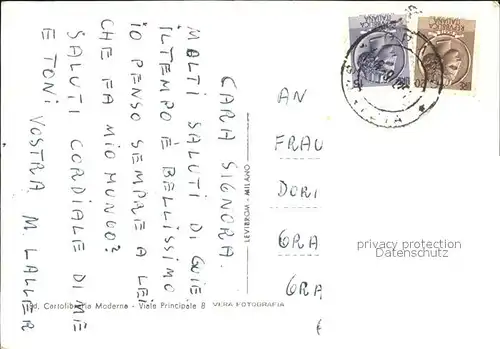 CARA SIGNORA.
MOLTI SALUTI DI QUIE
IL TEMPO É BELLISSIMO
IO PENSO SEMPRE A LEI
CHE FA MIO MUNGO?
SALUTI CORDIALE DI ME
E TONI VOSTRA, M. LALLER
AN
FRAU
DORI
GRA
GRA
LEVIBROM - MILANO
Ed. Cartolibreria Moderna - Viale Principale 8
VERA FOTOGRAFIA
REPUBBLICA
ITALIANA
REPUBBLICA
ITALIANA
privacy protection
Datenschutz